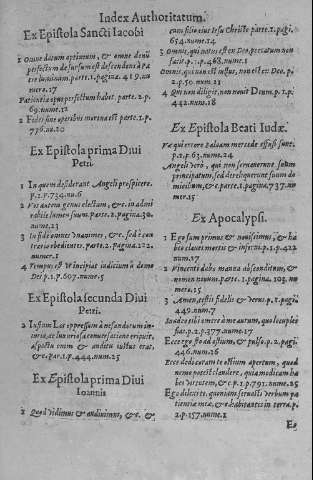 Index Authoritatum.
Ex Epistola Sancti Iacobi
1 Omne datum optimum, & omne donũ
perfectum desursum est descendens à Pa
tre luminum. parte. 1. pagina. 419. nu
mero. 17
Patientia opus perfectum habet. parte. 2. p.
69. numero. 12
2 Fides sine operibus mortua est. parte. 2. p.
776. nu. 20
Ex Epistola prima Diui
Petri.
1 In quem desiderant Angeli prospicere.
p. 1. p. 734. nu. 6
2 Vos autem genus electum, & c. in admi
rabile lumen suum. parte. 2. pagina. 30.
numero. 23
3 In fide omnes vnanimes, & c. sed è con
trario obedientes. parte. 2. pagina. 222.
numero. 1
4 Tempus est Vt incipiat iudicium à domo
Dei p. 1. p. 607. nume. 5
Ex Epistola secunda Diui
Petri.
2 Iustum Lot oppressum à nefandorum in-
iuria, ac luxuriosa conuersatione eripuit,
aspectu enim & auditu iustus erat,
& c. par. 1. p. 444. num. 25
Ex Epistola prima Diui
Ioannis
1 Quod vidimus & audiuimus, & c. &
cum filio eius Iesu Christo parte. 1. pagi.
654. nume. 14
3 Omnis, qui natus est ex Deo, peccatum non
facit. p. 1. p. 468. nume. 1
Omnis, qui non est iustus, non est ex Deo. p.
2. p. 50. num. 21
4 Qui non diligit, non nouit Deum. p. 1. p.
442. num. 18
Ex Epistola Beati Iudæ.
Væ qui errore Balaam mercede effusi sunt.
p. 1. p. 63. nume. 24
Angelos Verò, qui non seruauerunt suum
principatum, sed dereliquerunt suum do
micilium, & c. parte. 1. pagina, 737. nu-
mero. 15
Ex Apocalypsi.
1 Ego sum primus & nouissimus, & ha
beo claues mortis & inferni. p. 1. p. 422
num. 17
2 Vincenti dabo manna absconditum, &
nomen nouum. parte. 1. pagina. 103. nu
mero. 15
3 Amen, testis fidelis & Verus. p. 1. pagi.
449. num. 7
Suadeo tibi emere à me aurum, quo locuples
fias. p. 2. p. 277. nume. 17
Ecce ego sto ad ostium, & pulso. p. 2. pagi.
446. num. 16
Ecce dedi coram te ostium apertum, quod
nemo potest claudere, quia modicam ha
bes Virtutem, & c. p. 1. p. 791. numero. 25
Ego dilexi te. quoniam seruasti verbum pa
tientiæ meæ, & c habitantes in terra. p.
2. p. 157. nume. 1
Eo